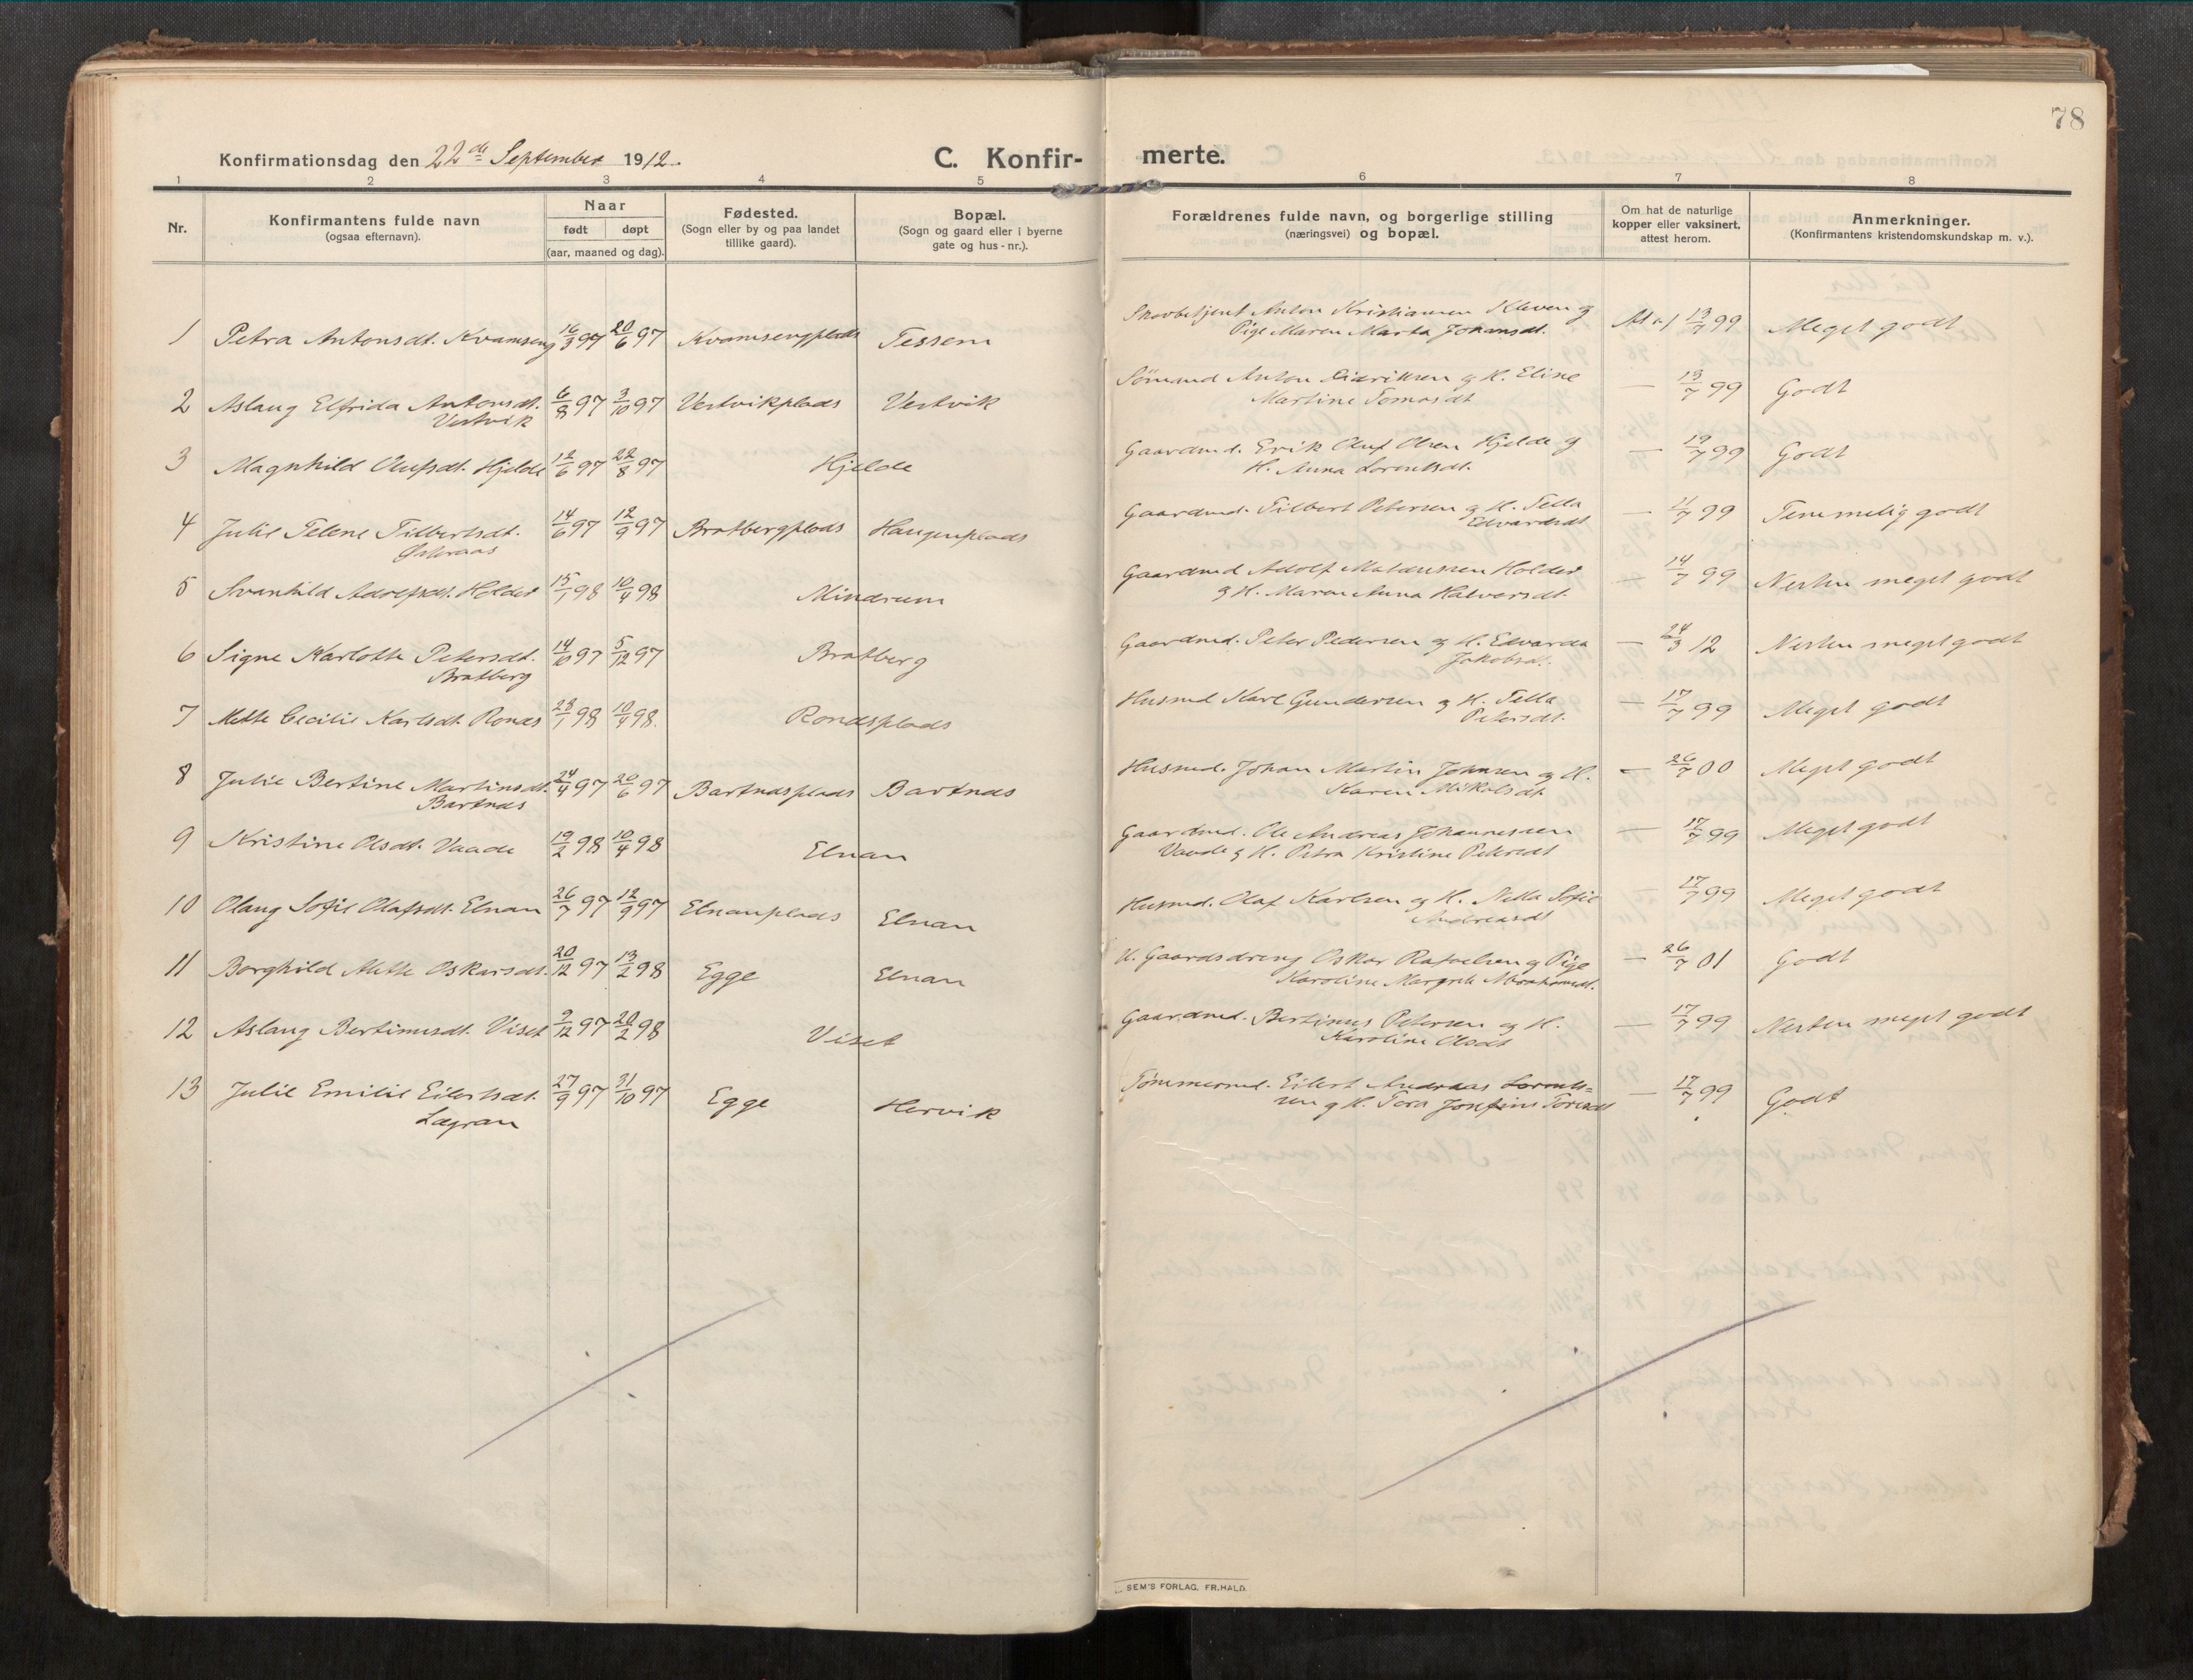 78
Konfirmationsdag den 22de September 1912. C. Konfir- merte.
1 2 3 4 5 6 7 8
Nr. Konfirmantens fulde navn (ogsaa efternavn). Naar født døpt (aar, maaned og dag). Fødested. (Sogn eller by og paa landet tillike gaard). Bopæl. (Sogn og gaard eller i byerne gate og hus-nr.). Forældrenes fulde navn, og borgerlige stilling (næringsvei) og bopæl. Om hat de naturlige kopper eller vaksinert, attest herom. Anmerkninger. (Konfirmantens kristendomskundskap m. v.).
1 Petra Antonsdt. Kvamseng 16/3 97 20/6 97 Kvamsengplads Tessem Skovbetjent Anton Kristiansen Kleven og 13/7 99 Meget godt
Pige Maren Marta Johansdt.
2 Aslaug Elfrida Antonsdt. 6/8 97 3/10 97 Vestvikplads Vestvik Sømand Anton Didriksen og H. Eline — 13/7 99 Godt
Vestvik Martine Tomasdt
3 Magnhild Olufsdt. Hjelde 12/6 97 22/8 97 Hjelde Gaardmd. Erik Oluf Olsen Hjelde og — 19/7 99 Godt
H. Anna Lorentsdt.
4 Julie Telene Tilbertsdt. 14/6 97 12/9 97 Bratbergplads Haugenplads Gaardmd. Tilbert Petersen og H. Tella — 99 Temmelig godt
Edvardsdt
5 Svanhild Adolfsdt. Holder 15/1 98 10/4 98 Mindrum Gaardmd Adolf Holder — 14/7 99 Nesten meget godt
og H. Maren Anna Halvorsdt.
6 Signe Karlotte Petersdt. 14/10 97 5/12 97 Bratberg Gaardmd. Peter Pedersen og H. Edvarda — 24/3 12 Nesten meget godt
Bratberg Jakobsdt.
7 Mette Cecilie Karlsdt. Ronas 28/1 98 10/4 98. Ronasplads Husmd Karl Gundersen og H. Tella — 17/7 99 Meget godt
Petersdt.
8 Julie Bertine Martinsdt. 24/4 97 20/6 97 Bartnasplads Bartnas Husmd. Johan Martin Johnsen og H. — 26/7 00 Meget godt
Bartnas Karen Mikalsdt.
9 Kristine Olsdt. Vaade 19/2 98 10/4 98 Elnan Gaardmd. Ole Andreas Johannessen — 17/7 99 Meget godt
Vaade og H. Petra Kristine Petersdt
10 Olaug Sofie Olafsdt. Elnan 26/7 97 12/9 97 Elnanplads Elnan Husmd. Olaf Karlsen og H. Sofie — 17/7 99 Meget godt
Andreasdt
11 Borghild Mette Oskarsdt. 20/12 97 13/2 98 Egge Elnan U. Gaardsdreng Oskar Rafaelsen og Pige — 26/7 01 Godt
Karoline Margrete Abrahamsdt.
12 Aslaug Bertinusdt. Viset 9/12 97 20/2 98 Viset Gaardmd. Bertinus Petersen og H. — 17/7 99 Nesten meget godt
Karoline Olsdt
13 Julie Emilie Eilertsdt. 27/9 97 31/10 97 Egge Hervik Tømmermd. Eilert Andreas Lorents= — 17/7 99 Godt
Lægran sen og H. Tora Josefine Toresdt
SEM'S FORLAG. FR. HALD.